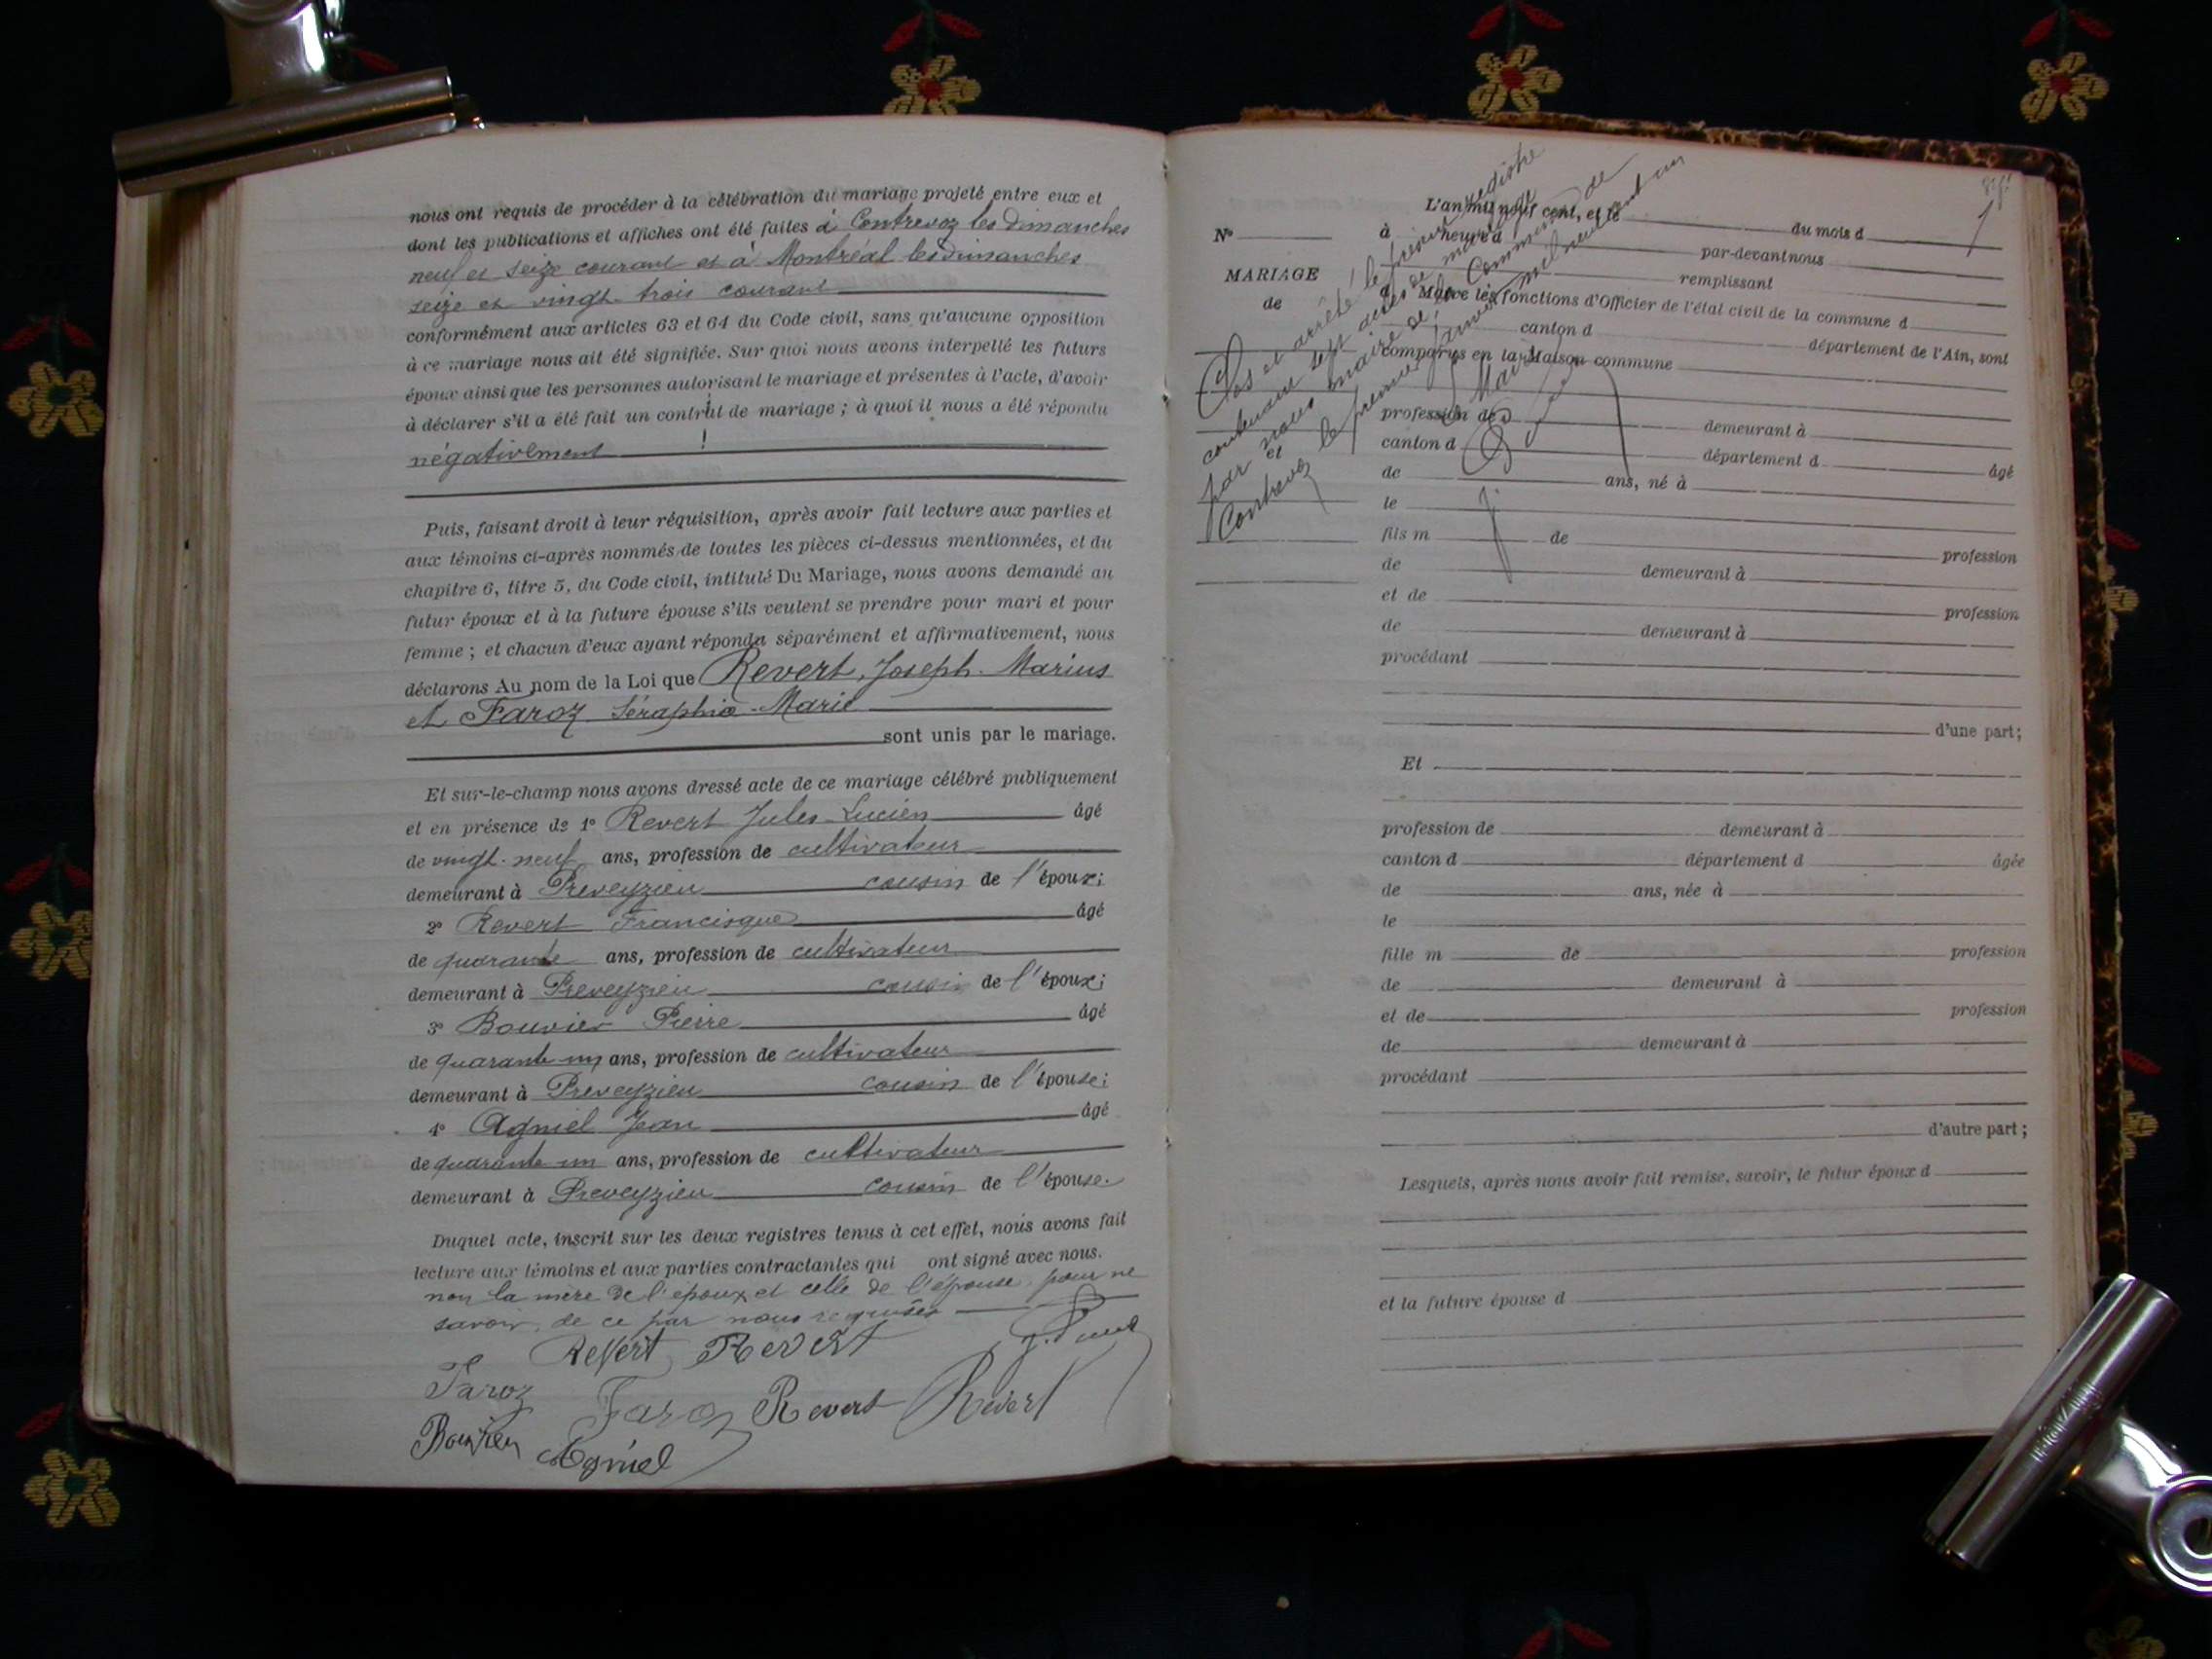 nous ont requis de procéder à la célébration du mariage projeté entre eux et
dont les publications et affiches ont été faites à Contrevoz les dimanches
neuf et seize courant et à Montréal les dimanches
seize et vingt-trois courant
conformément aux articles 63 et 64 du Code civil, sans qu'aucune opposition
à ce mariage nous ait été signifiée. Sur quoi nous avons interpellé les futurs
époux ainsi que les personnes autorisant le mariage et présentes à l'acte, d'avoir
à déclarer s'il a été fait un contrat de mariage ; à quoi il nous a été répondu
négativement
Puis, faisant droit à leur réquisition, après avoir fait lecture aux parties et
aux témoins ci-après nommés de toutes les pièces ci-dessus mentionnées, et du
chapitre 6, titre 5, du Code civil, intitulé Du Mariage, nous avons demandé au
futur époux et à la future épouse s'ils veulent se prendre pour mari et pour
femme ; et chacun d'eux ayant répondu séparément et affirmativement, nous
déclarons Au nom de la Loi que Revert, Joseph-Marius
et Faroz Séraphie-Marie
sont unis par le mariage.
Et sur-le-champ nous avons dressé acte de ce mariage célébré publiquement
et en présence de 1° Revert Jules-Lucien âgé
de vingt-neuf ans, profession de cultivateur
demeurant à Preveyzieu cousin de l'époux;
2° Revert Francisque âgé
de quarante ans, profession de cultivateur
demeurant à Preveyzieu cousin de l'époux;
3° Bouvier Pierre âgé
de quarante-un ans, profession de cultivateur
demeurant à Preveyzieu cousin de l'épouse;
4° Agniel Jean âgé
de quarante-un ans, profession de cultivateur
demeurant à Preveyzieu cousin de l'épouse.
Duquel acte, inscrit sur les deux registres tenus à cet effet, nous avons fait
lecture aux témoins et aux parties contractantes qui ont signé avec nous.
non la mère de l'époux et celle de l'épouse, pour ne
savoir, de ce par nous requises
Revert Revert
Faroz Faroz Revert Revert
Bouvier Agniel
L'an mil neuf cent, et le du mois d
N° à heure d par-devant nous
MARIAGE remplissant
de d Maire les fonctions d'Officier de l'état civil de la commune d
canton d département de l'Ain, sont
comparus en la Maison commune
profession de demeurant à
et canton d département d âgé
de ans, né à
le
fils m de profession
de demeurant à
et de profession
de demeurant à
procédant
d'une part;
Et
profession de demeurant à
canton d département d âgée
de ans, née à
le
fille m de profession
de demeurant à
et de profession
de demeurant à
procédant
d'autre part;
Lesquels, après nous avoir fait remise, savoir, le futur époux d
et la future épouse d
Clos et arrêté le présent registre
contenant sept actes de mariage
par nous maire de la Commune de
Contrevoz le premier janvier mil neuf cent un